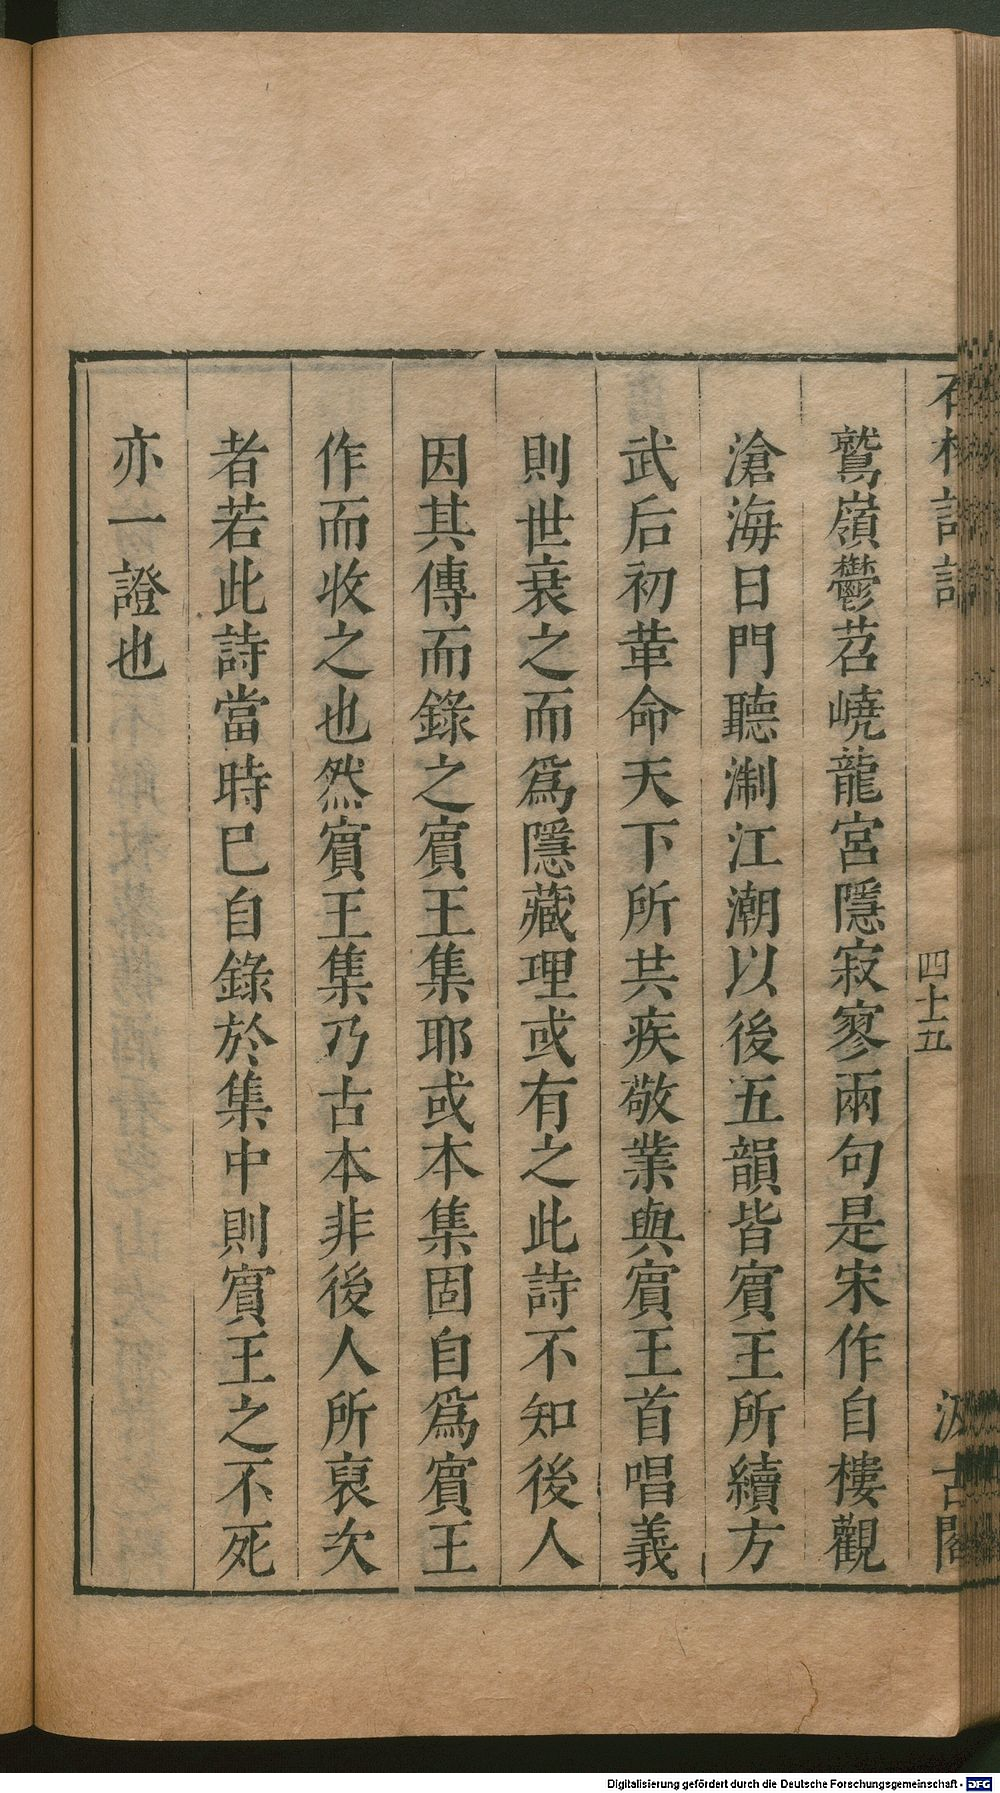 石林詩話
四十五
汲古閣
鷲嶺鬱苕嶢龍宮隱寂寥兩句是宋作自樓觀
滄海日門聽淛江潮以後五韻皆賔王所續方
武后初革命天下所共疾敬業與賔王首唱義
則世哀之而爲隱藏理或有之此詩不知後人
因其傳而錄之賔王集耶或本集固自爲賔王
作而收之也然賔王集乃古本非後人所裒次
者若此詩當時巳自錄於集中則賔王之不死
亦一證也
Digitalisierung gefördert durch die Deutsche Forschungsgemeinschaft - DFG